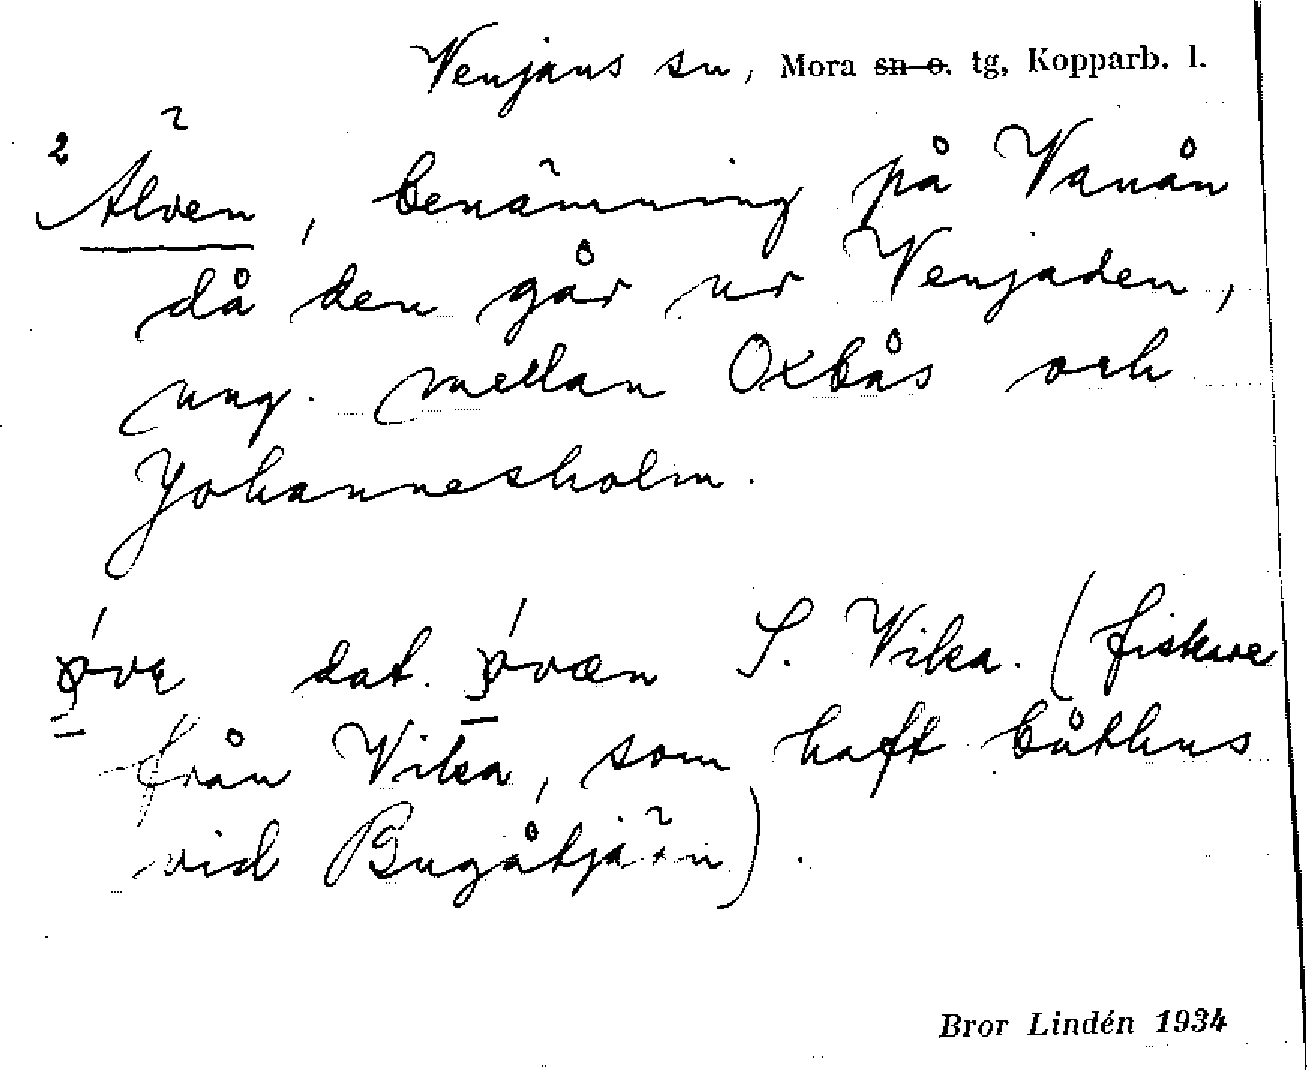 Venjans sn, Mora sn o. tg, Kopparb. l.
2 Älven, benämning på Vanån
då den går ur Venjaden,
ung. mellan Oxbås och
Johannesholm.
dat. S. Vika. (fiskare
från Vika, som haft båthus
vid Bugåtjärn).
Bror Lindén 1934